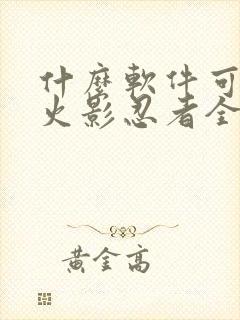 什麼軟件可
火影忍者全
黃金高